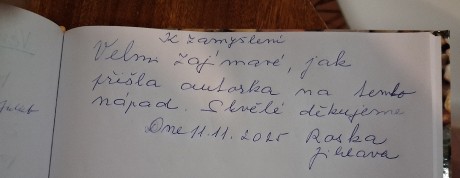 K zamyšlení
Velmi zajímavé, jak
přišla autorka na tento
nápad. Skvělé děkujeme
Dne 11.11.2025 Roska
Jihlava